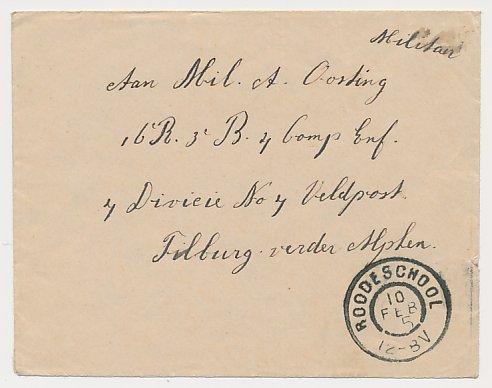 Militair
Aan Mil. A. Oosting
16 R. 3e B. 4 Comp Inf.
4 Divicie No 4 Veldpost.
Tilburg verder Alphen.
ROODESCHOOL
10
FEB
5
12-8V